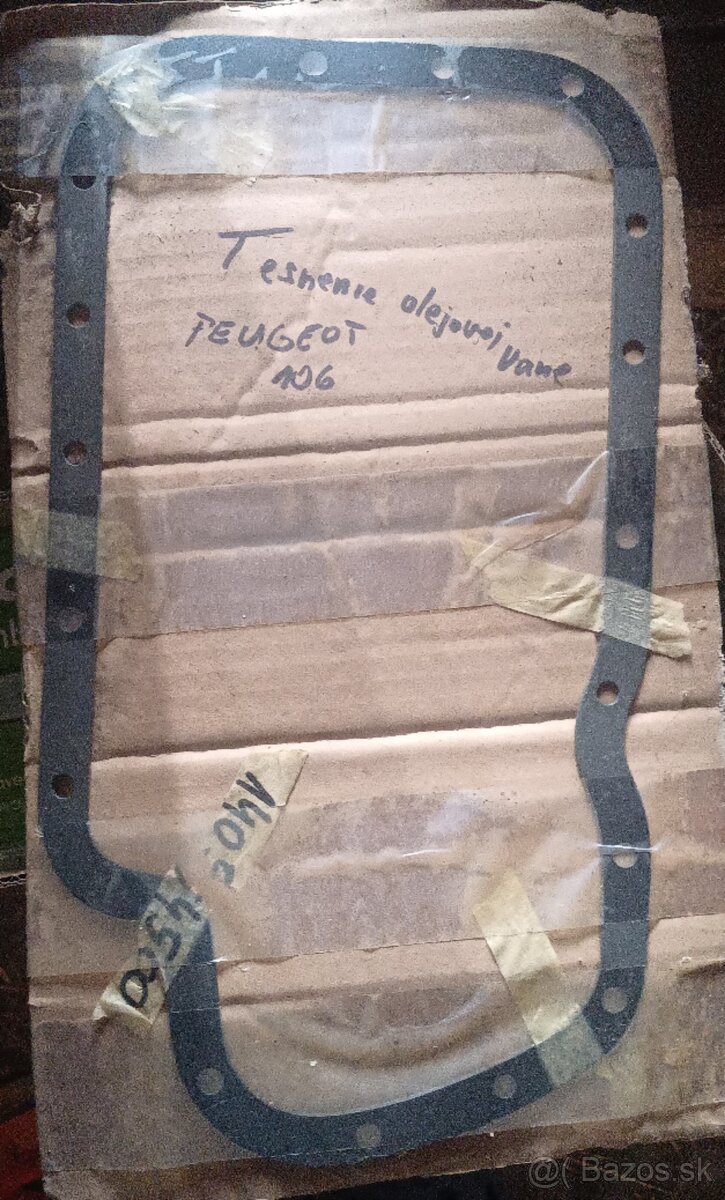 Tesnenie olejovej vane
PEUGEOT
106
140.-
@( Bazos.sk